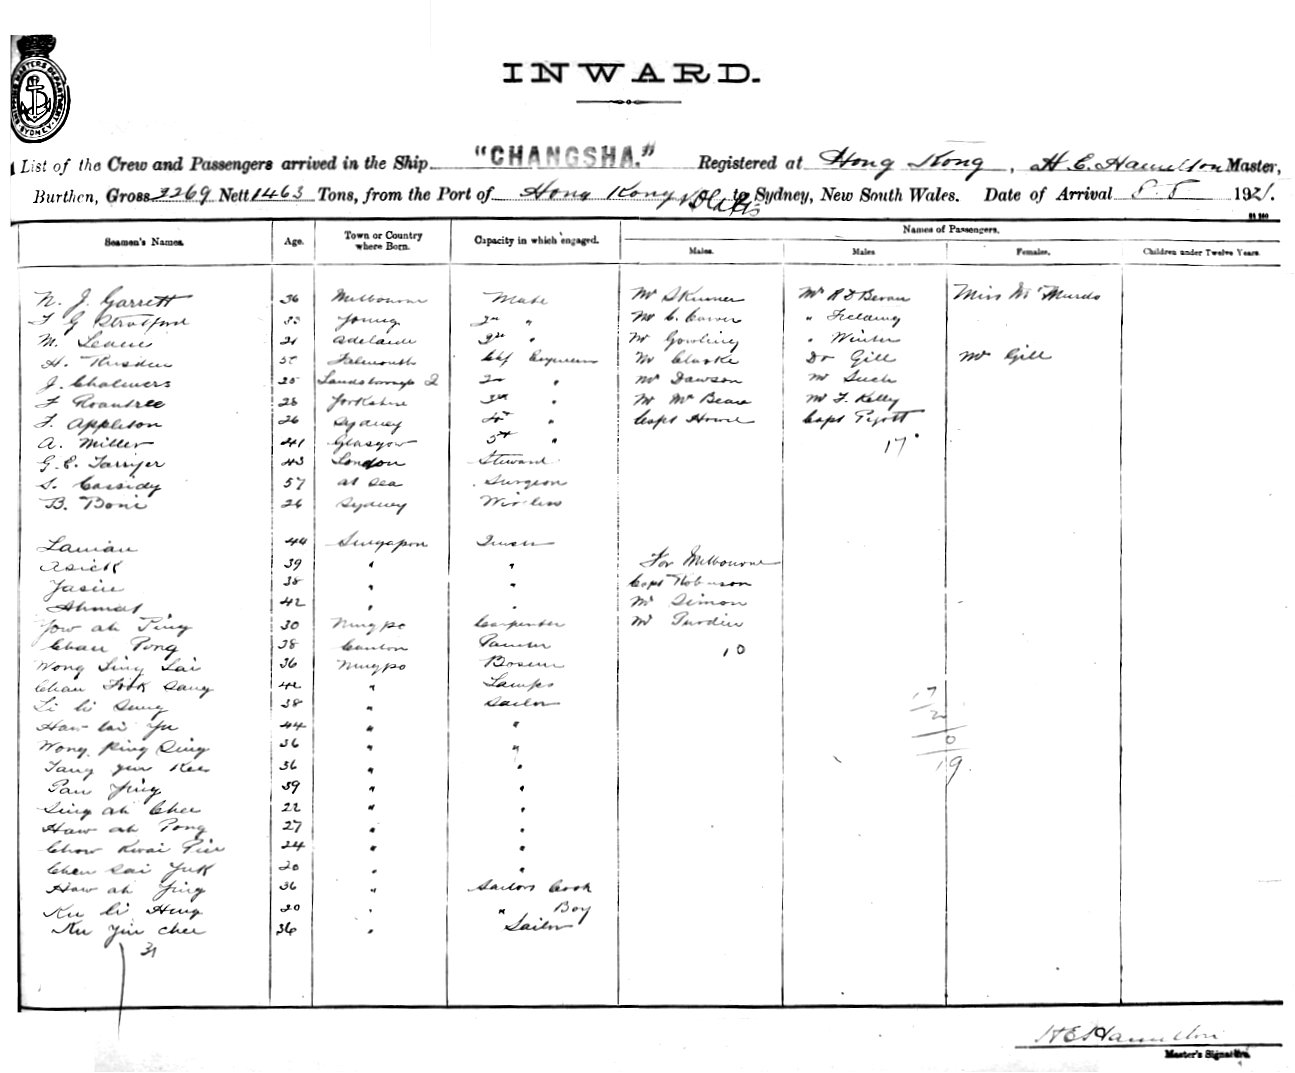 SHIPPING MASTERS DEPARTMENT SYDNEY
INWARD.
List of the Crew and Passengers arrived in the Ship "CHANGSHA." Registered at Hong Kong, H. E. Hamilton Master,
Burthen, Gross 2269 Nett 1463 Tons, from the Port of Hong Kong to Sydney, New South Wales. Date of Arrival 5.5 1921.
Seamen's Names. Age. Town or Country where Born. Capacity in which engaged. Names of Passengers.
Males. Males Females. Children under Twelve Years.
N. J. Garrett 36 Melbourne Mate Mr Skinner Mr R D Bevan Miss McMurdo
T G Stratford 33 Young 2nd " Mr C. " Fielding
M. 21 Adelaide 3rd " Mr Gowling " Winter
H. 50 Falmouth Chf Engineer Mr Clarke Dr Gill Mrs Gill
J. Chalmers 25 Landsborough 2nd " Mr Dawson Mr Such
F Roantree 28 Yorkshire 3rd " Mr Mr F. Kelly
F. Appleton 26 Sydney 4th " Capt Howe Capt Pyott
A. Miller 41 Glasgow 5th " 17
G. E. 43 London Steward
S. Cassidy 57 at Sea Surgeon
B. Boni 26 Sydney Wireless
44 Singapore
Asick 39 " " For Melbourne
Jasin 38 " " Capt Robinson
Ahmat 42 " " Mr Simon
Yow ah Ping 30 Ningpo Carpenter Mr
Chan Pong 38 Canton Painter 10
Wong Ling Sai 36 Ningpo Bosun
Chan Fook Sang 42 " Lamps
Li li Sung 38 " Sailor
Haw lai Yu 44 " "
Wong King Sing 36 " "
Tang yew Kee 36 " "
Pan Ying 39 " "
Sing ah Chee 22 " "
Haw ah Pong 27 " "
Chow Kwai 24 " "
Chen Sai Yuk 20 " "
Haw ah Ying 36 " Sailors Cook
Ku li Hing 20 " " Boy
Ku Yin Chee 36 " Sailor
31
17
2
0
19
H E Hamilton
Master's Signature.